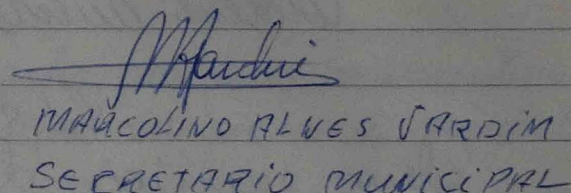 MARCOLINO ALVES JARDIM
SECRETARIO MUNICIPAL